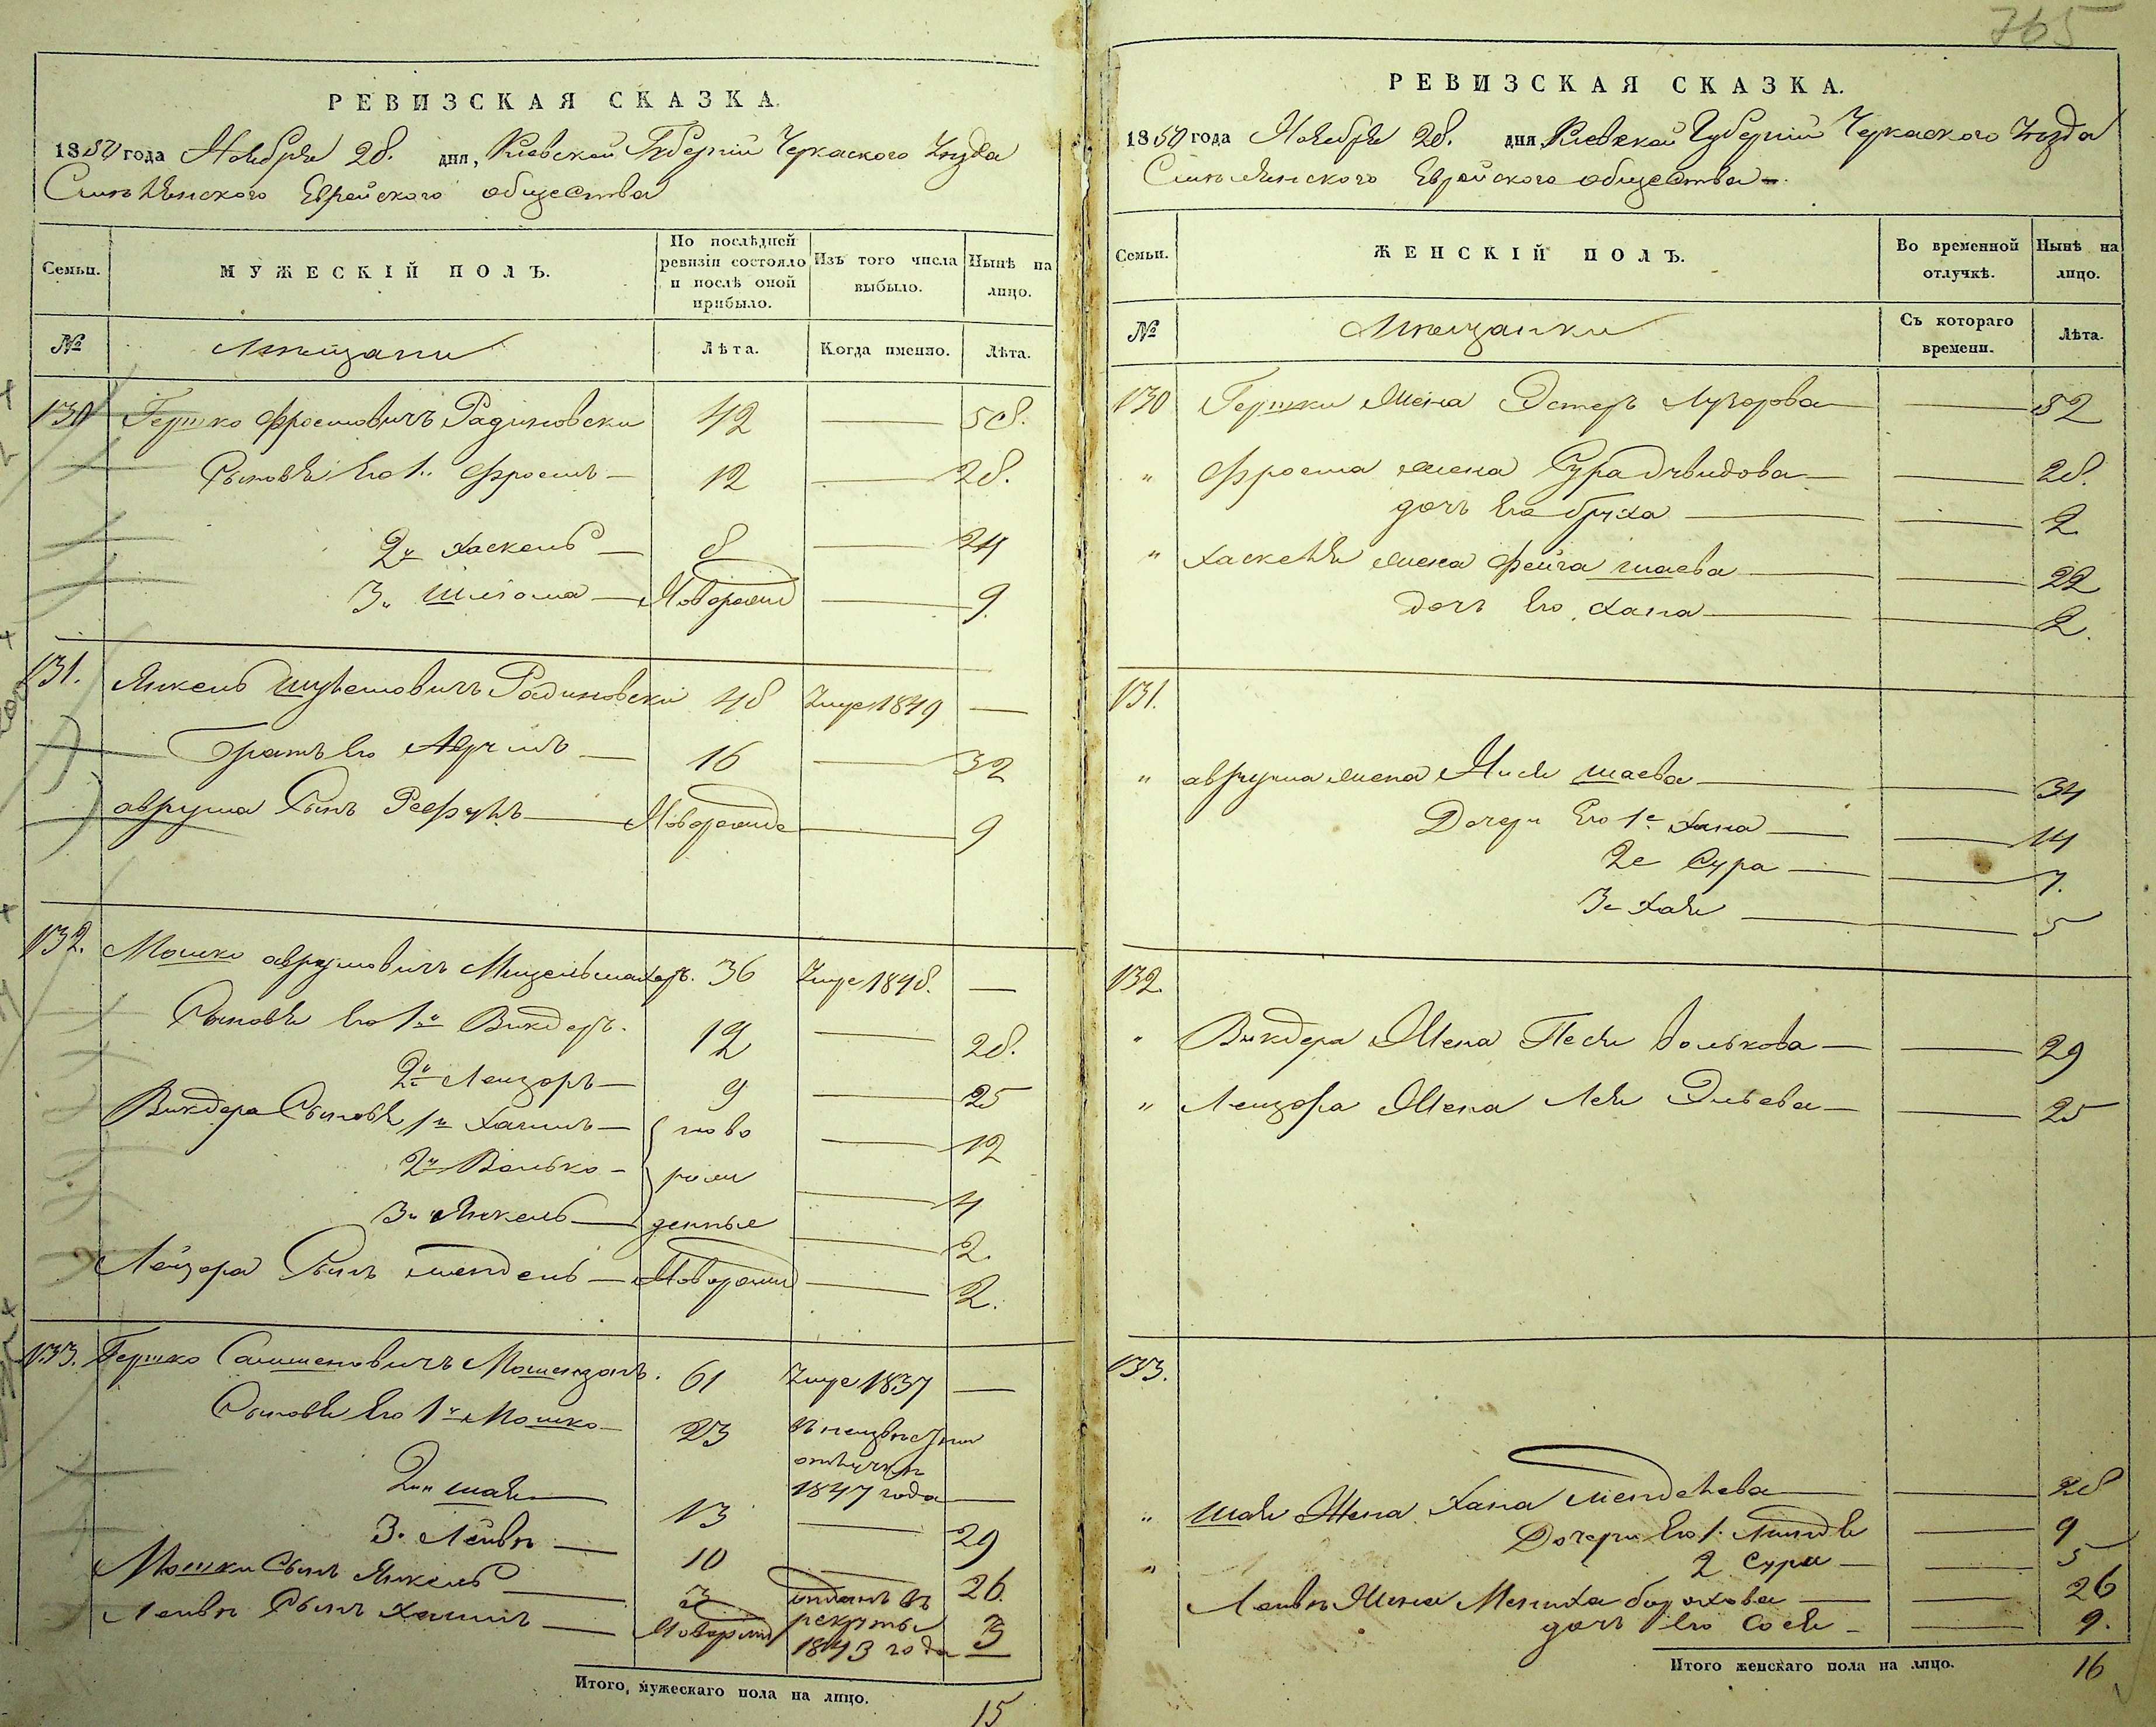 РЕВИЗСКАЯ СКАЗКА.
1850 года Ноября 28. дня, Киевской Губернии Черкаского Уезда
Смѣлянского Еврейского общества
Семьи. МУЖЕСКІЙ ПОЛЪ. По послѣдней ревизіи состояло и послѣ оной прибыло. Изъ того числа выбыло. Нынѣ на лицо.
№ Мѣщани Лѣта. Когда именно. Лѣта.
130 Гершко Фроимовичъ Радиновски 42 — 58.
Сыновя Его 1.. Фроимъ — 12 — 28.
2й Хаскель — 8 — 24
3й Шлиома — Новорожд — 9.
131. Янкель Шулемовичъ Радиновски 48 Умре 1849 —
Братъ Его Аврумъ — 16 — 32
Аврума Сынъ Рефулъ — Новорожде — 9
132. Мошко Аврумовичъ Мицельмахеръ. 36 Умре 1848. —
Сыновя Его 1й Викдеръ. 12 — 28.
2й Лейзоръ — 9 — 25
Викдера Сыновя 1й Хаимъ — ново — 12
2й Волько — рож — 4
3й Янкель — денные — 2.
Лейзера Сынъ Мендель — Новорожд — 2.
133. Гершко Мошензонъ. 61 Умре 1837 —
Сыновя Его 1й Мошко — 23 въ неизвѣстной отлучки 1847 года —
2й Шая — 13 — 29
3. Лейвѣ — 10 — 26.
Мошки Сынъ Янкель — 3 отданъ въ рекруты 1843 года —
Лейвѣ Сынъ Хаимъ — Новорожд 3
Итого, мужескаго пола на лицо. 15
765
РЕВИЗСКАЯ СКАЗКА.
1850 года Ноября 28. дня, Киевской Губернии Черкаского Уезда
Смѣлянского Еврейского общества.
Семьи. ЖЕНСКІЙ ПОЛЪ. Во временной отлучкѣ. Нынѣ на лицо.
№ Мѣщанки Съ котораго времени. Лѣта.
130 Гершки Жена Эстеръ Лузорова — 52
" Фроима жена Сура Дувидова — 28.
дочь Его Бруха — 2
" Хаскеля жена Фейга Шаева — 22
дочь Его Хана — 2.
131.
" Аврума жена Нися Шаева — 34
Дочери Его 1е Хана — 14
2е Сура — 7.
3е Хая — 5
132.
" Викдера Жена Песя Волькова — 29
" Лейзора Жена Лея Эльева — 25
133.
" Шаи Жена Хана Менделева — 28
Дочери Его 1. — 9
2 Сура — 5
" Лейвѣ Жена Мениха Борохова — 26
дочь Его Сося — 9.
Итого женскаго пола на лицо. 16